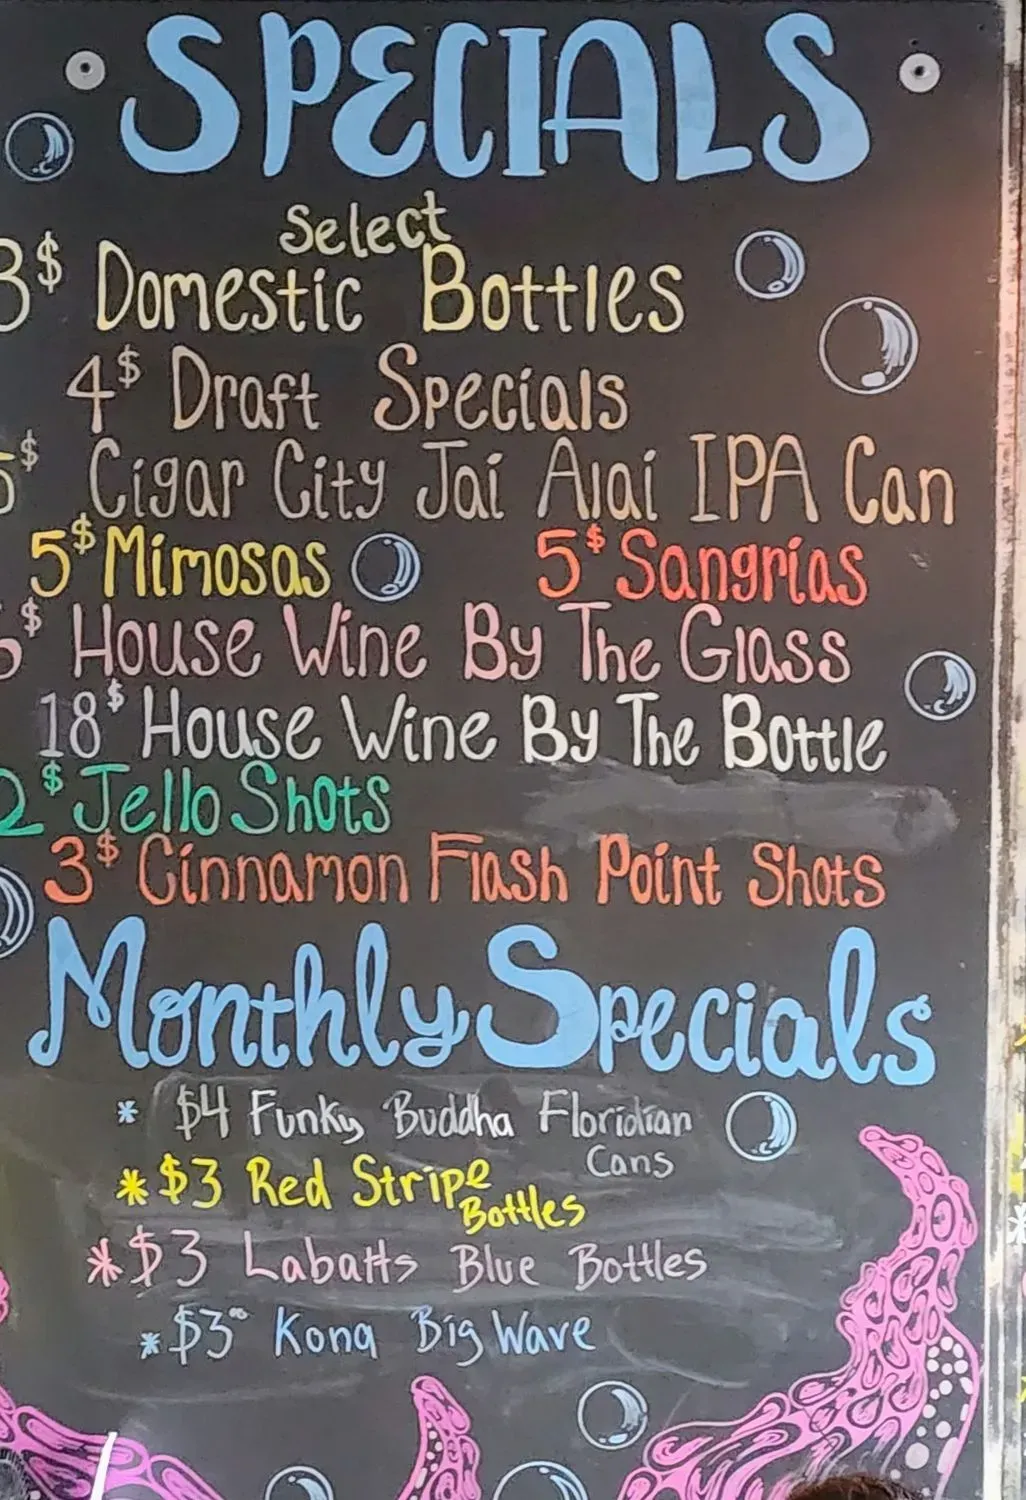 SPECIALS
Select
3$ Domestic Bottles
4$ Draft Specials
5$ Cigar City Jai Alai IPA Can
5$ Mimosas 5$ Sangrias
6$ House Wine By The Glass
18$ House Wine By The Bottle
2$ Jello Shots
3$ Cinnamon Flash Point Shots
Monthly Specials
* $4 Funky Buddha Floridian
Cans
* $3 Red Stripe
Bottles
* $3 Labatts Blue Bottles
* $3⁰⁰ Kona Big Wave